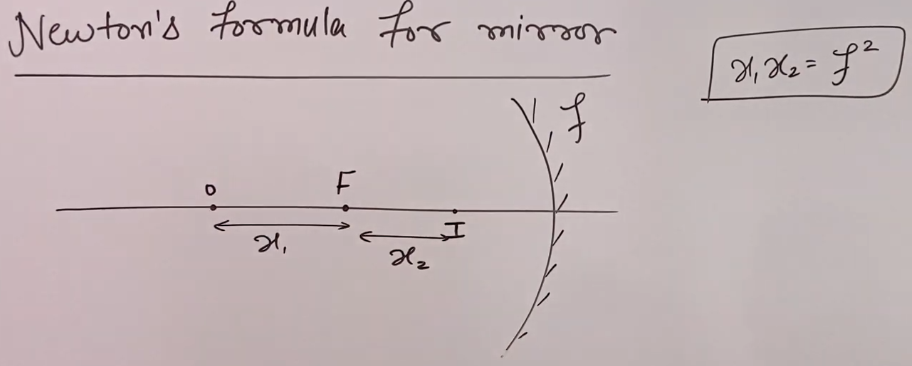 Newton's formula for mirror
x₁x₂ = f²
f
O F
I
x₁
x₂